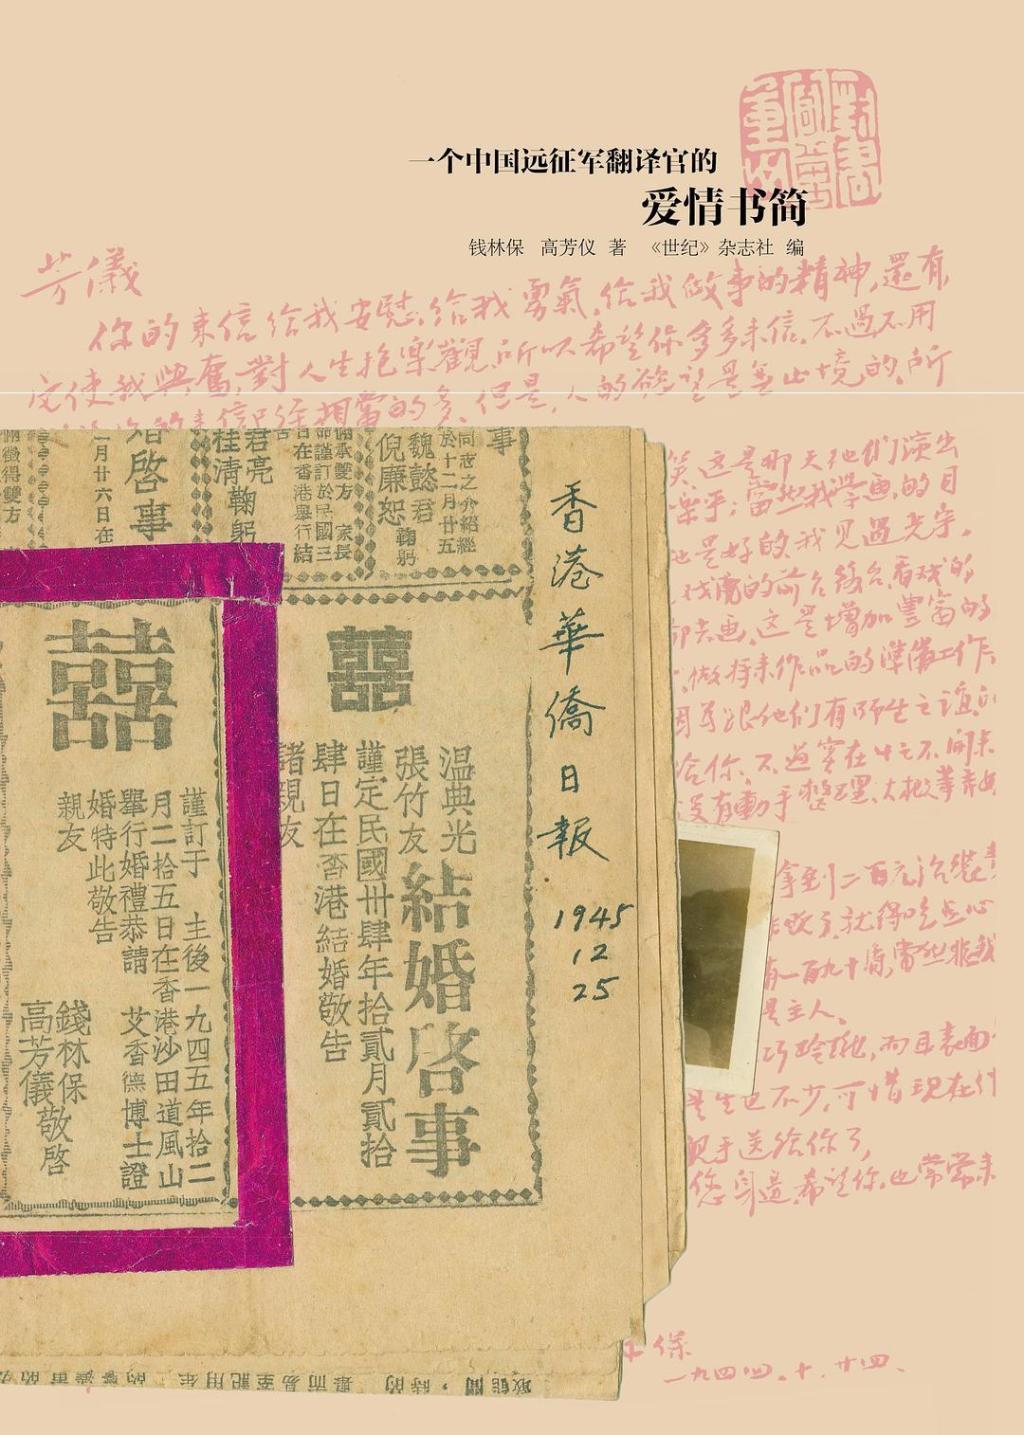 一个中国远征军翻译官的
爱情书简
钱林保 高芳仪 著 《世纪》杂志社 编
芳儀
你的来信给我安慰,给我勇氣,给我做事的精神,還有,
使我興奮,對人生抱樂觀,所以希望你多多来信,不過不用
来信已经相當的多,但是,人的慾望是無止境的,所
笑,这是那天他们演出
樂乎;當然我學画的目
也是好的,我见過光宇,
的前台後台,看戏的
部去画,这是增加豐富的
做将来作品的準備工作,
因为跟他们有师生之谊,
给你,不過实在
没有動手整理,大概
拿到二百元治装
就得吃点心
有一百九十萬,當然非我
是主人,
而且表面
是生也不少,可惜现在
親手送给你了,
您
希望你也常常来
保
一九四四.十.廿四.
事
同志之介紹經
於十二月廿五
魏懿君
倪廉恕
鞠躬
承雙方家長
謹訂於民國三
日在香港舉行結
君亮
桂清
鞠躬
啓事
月廿六日在
徵得雙方
香港華僑日報
1945
12
25
囍
溫典光
張竹友
結婚啓事
謹定民國卅肆年拾貳月貳拾
肆日在香港結婚敬告
諸親友
囍
謹訂于 主後一九四五年拾二
月二拾五日在香港沙田道風山
舉行婚禮恭請 艾香德博士證
婚特此敬告
親友
錢林保
高芳儀
敬啓